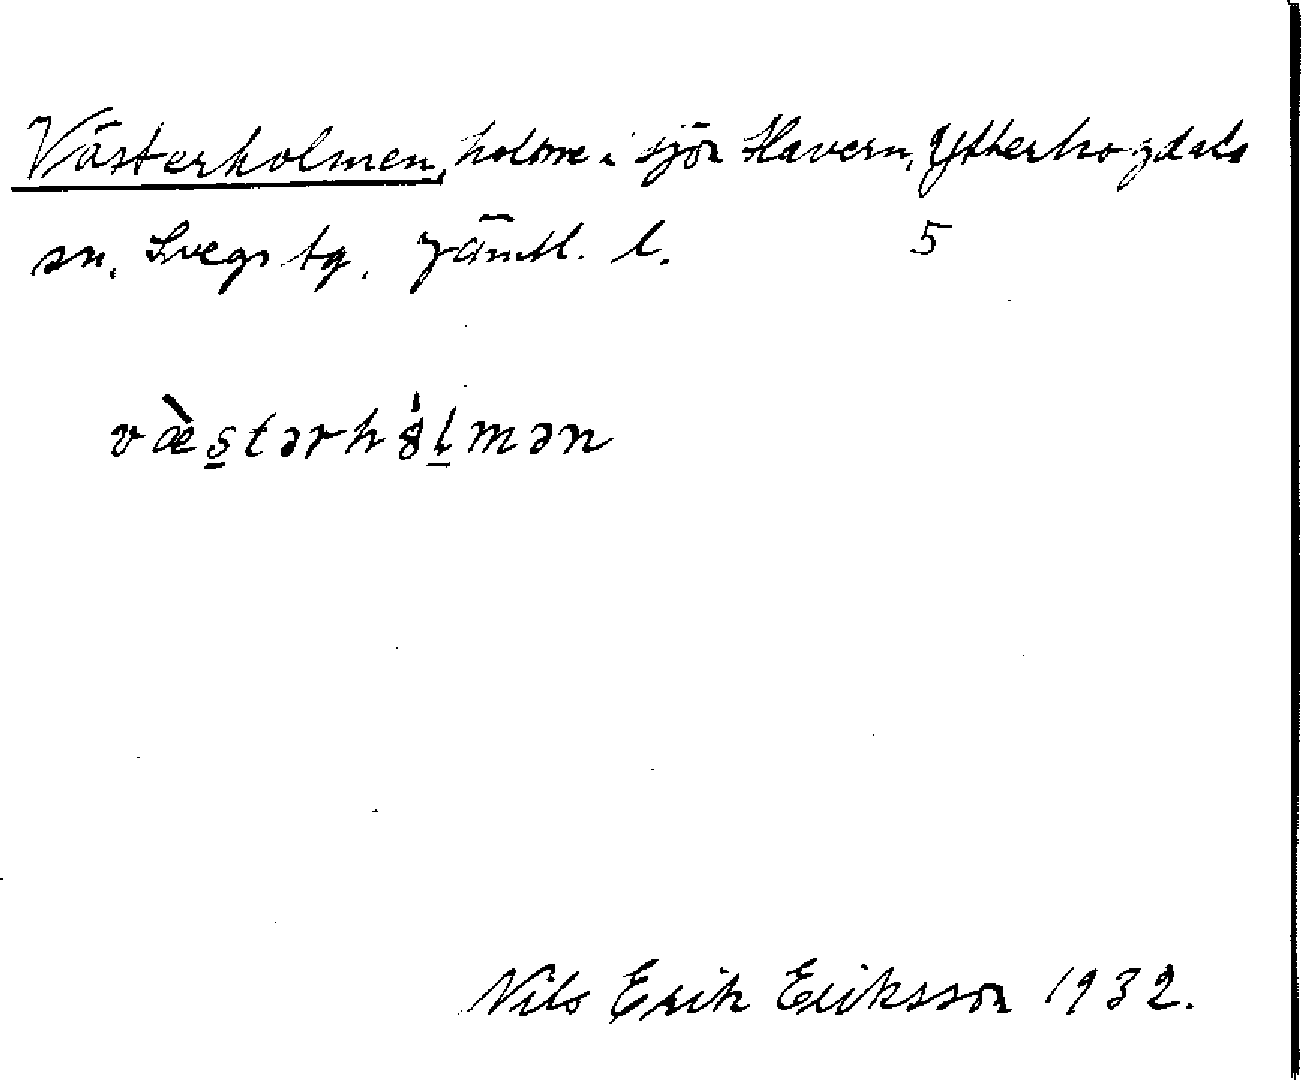 Västerholmen, holme i sjön Havern, Ytterhogdals
sn. Svegs tg. Jämtl. l. 5
væ̀s̲tərhȣ́l̲mən
Nils Erik Eriksson 1932.